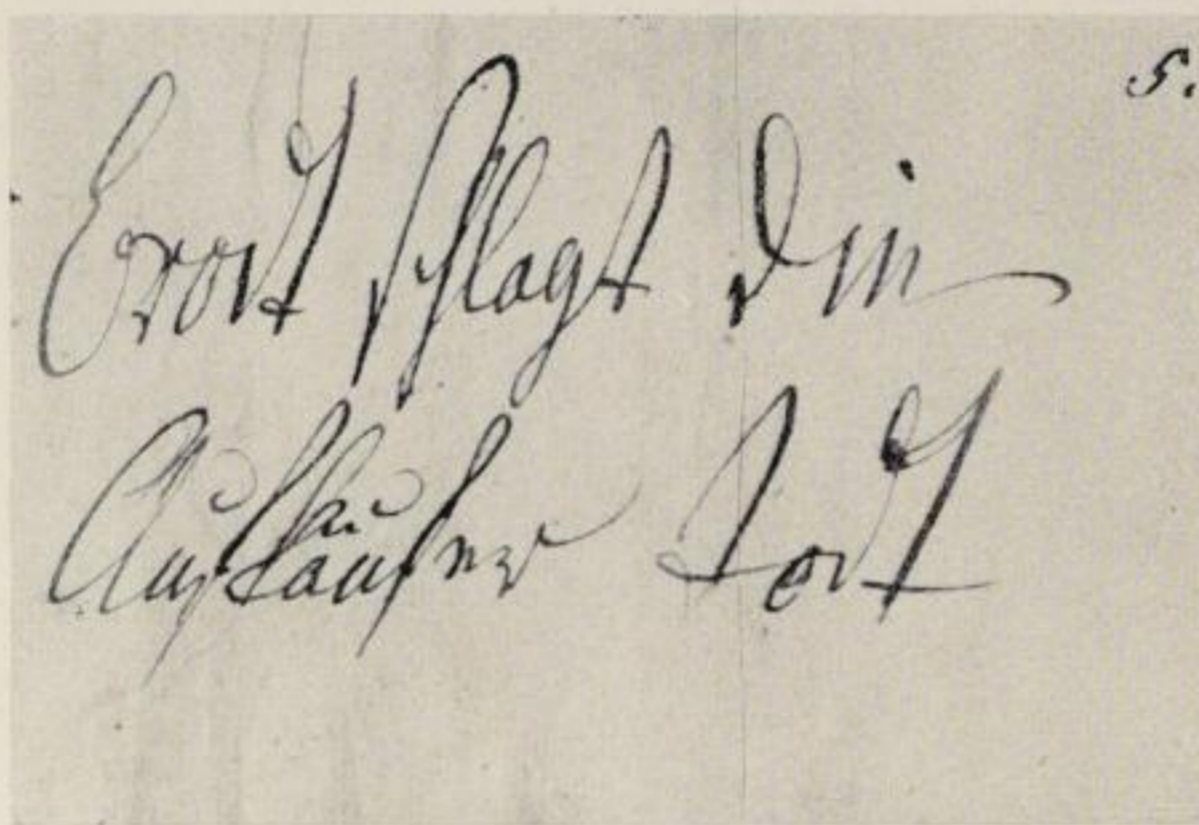 5.
Brodt schlagt die
Aufkaufer todt